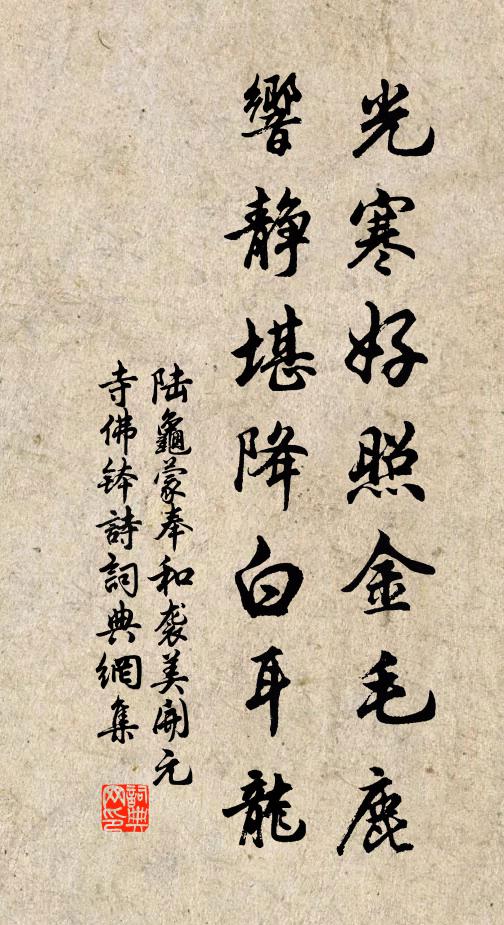 光寒好照金毛鹿
響靜堪降白耳龍
陆龜蒙奉和袭美開元
寺佛鉢詩詞典網集
詞典
网印